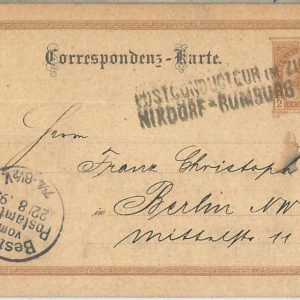 Correspondenz-Karte.
POSTCONDUCTEUR IM ZU
NIXDORF-RUMBURG
2
Herrn
Franz Christoph
in Berlin NW
Mittelstr 11
7¼-8½V.
22/8 9
Bes
vom
Postamt